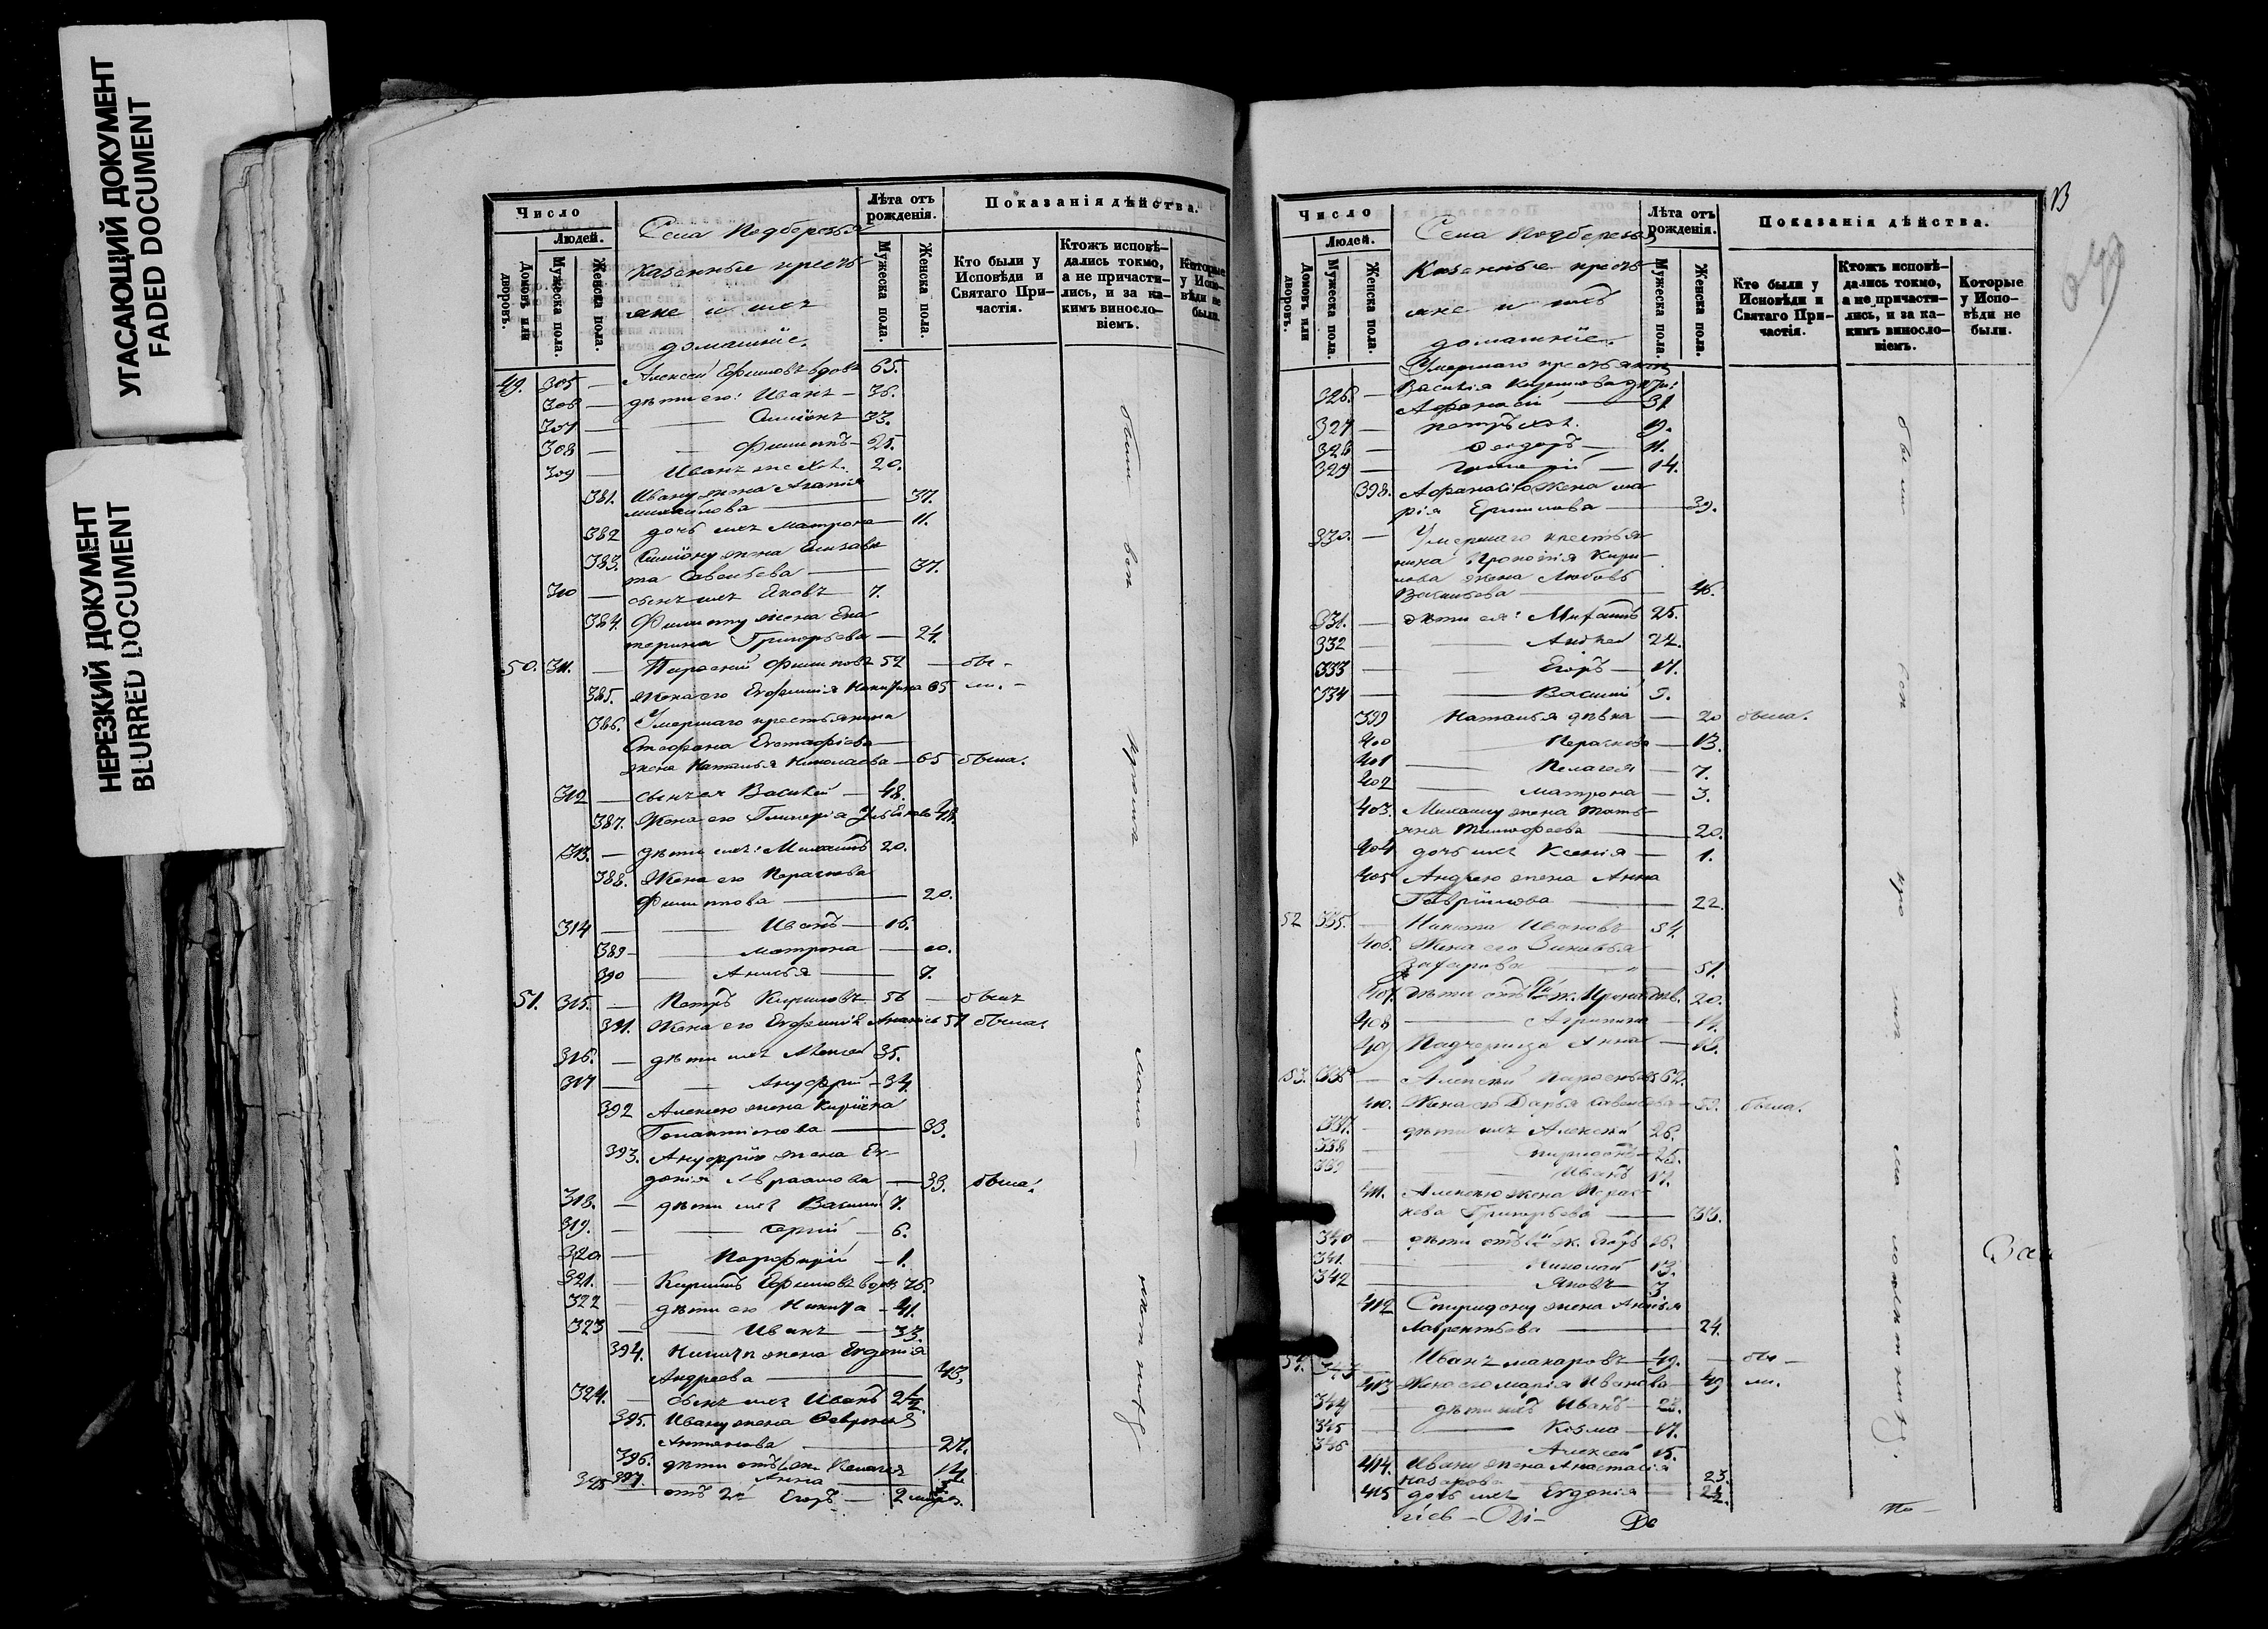 УГАСАЮЩИЙ ДОКУМЕНТ
FADED DOCUMENT
НЕРЕЗКИЙ ДОКУМЕНТ
BLURRED DOCUMENT
Число
Людей.
Домовъ или дворовъ.
Мужеска пола.
Женска пола.
Села Подберезья
казенные кресть
яне и ихъ
домашніе.
Лѣта отъ рожденія.
Мужеска пола.
Женска пола.
Показанія дѣйства.
Кто были у Исповѣди и Святаго При-частія.
Ктожъ исповѣ-дались токмо, а не причасти-лись, и за ка-кимъ винословіемъ.
Которые у Испо-вѣди не были.
49. 305 — Алексей Ефимовъ вдовъ 65.
306 — дѣти его: Иванъ — 36.
307 — Симіонъ 33.
308 — Филиппъ — 25.
309 — Иванъ же хол. 20.
381. Ивану жена Агапія
Михайлова — 37.
382 дочь ихъ Матрона — 11.
383. Симіону жена Елизаве
та Савельева — 37.
310 — сынъ ихъ Яковъ 7.
384. Филиппу жена Ека
терина Григорьева — 24.
50. 311. — Филиповъ 52 — бы-
385. Жена его Евфимія Никитина 65 ли. -
386. Умершаго крестьянина
Стефана Евстафіева
жена Наталья Николаева — 65 была.
312 — сынъ ея Василій — 48.
387. Жена его Гликерія 48.
313. — дѣти ихъ: Михаилъ 20.
388. Жена его Парасковья
Филиппова — 20.
314 — Иванъ — 16.
389 — Матрона — 10.
390 — Анисья — 7.
51. 315. — Петръ Кириловъ 56 — былъ
391. Жена его Евфимія 57 была.
316. — дѣти ихъ Алексей 35.
317 — Ануфрій — 34.
392 Алексею жена Кирікеа
33.
393. Ануфрію жена Ев-
докія Авраамова — 33. была.
318. — дѣти ихъ Василій 7.
319. — Сергій — 6.
320 — Порфирій — 1.
321. — Кирилъ Ефимовъ вдовъ 76.
322 — дѣти его Никита — 41.
323 — Иванъ — 33.
394. Никиты жена Евдокія
Андреева — 43.
324. — сынъ ихъ Иванъ
395. Ивану жена
Антонова — 27.
396. дѣти отъ 1 ж. Пелагея
397. Анна
325 отъ 2й Егоръ —
были
вси
крома
мало
лѣтнихъ
13
Число
Людей.
Домовъ или дворовъ.
Мужеска пола.
Женска пола.
Села Подберезья
Казенные кресть
яне и ихъ
домашніе.
Лѣта отъ рожденія.
Мужеска пола.
Женска пола.
Показанія дѣйства.
Кто были у Исповѣди и Святаго При-частія.
Ктожъ исповѣ-дались токмо, а не причасти-лись, и за ка-кимъ винословіемъ.
Которые у Испо-вѣди не были.
Умершаго крестьянина
326. — Василія Кирилова дѣти:
Афанасій — 31
327 — Петръ хол. 19.
328 — Феодоръ — 11.
329 — Григорій — 14.
398. Афанасію жена Ма
рія Ермилова — 39.
330. — Умершаго крестья
нина Прокопія Кири-
лова жена Любовь
Васильева — 46.
331. — дѣти ея: Михаилъ 25.
332 — Андрей 22.
333 — Егоръ — 17.
334 — Василій 5.
399 Наталья дѣвка — 20 была.
400 — Парасковья — 13.
401 — Пелагея — 7.
402 — Матрона — 3.
403. Михаилу жена Тать-
яна Тимофеева — 20.
404 дочь ихъ Ксенія — 1.
405 Андрею жена Анна
Гавріилова — 22.
52 335. — Никита Ивановъ — 54.
406. Жена его Зиновья
Захарова — 51.
407. дѣти отъ 1й ж. Ирина дѣв. 20.
408 — Агрипина —
409 Падчерица Анна — 18.
53. 336 — Алексей 62.
410. Жена его Дарья Савельева — 53. была.
337. — дѣти ихъ Алексей 26.
338 — Спиридонъ — 25.
339 — Иванъ 17.
411. Алексею жена Парас-
кева Григорьева — 33.
340 — дѣти отъ 1й ж. Егоръ 16.
341. — Николай 13.
342 — Яковъ — 3.
412 Спиридону жена Анисья
Лаврентьева — 24.
54. 343 — Иванъ Макаровъ — 49. — бы —
413 Жена его Марія Иванова — 49 ли.
344 дѣти ихъ Иванъ —
345 — Козма — 17.
346 — Алексей 15.
414. Ивану жена Анастасія
Назарова 23.
415 дочь ихъ Евдокія
были
вси
кро
мѣ
ма
лолѣтнихъ.